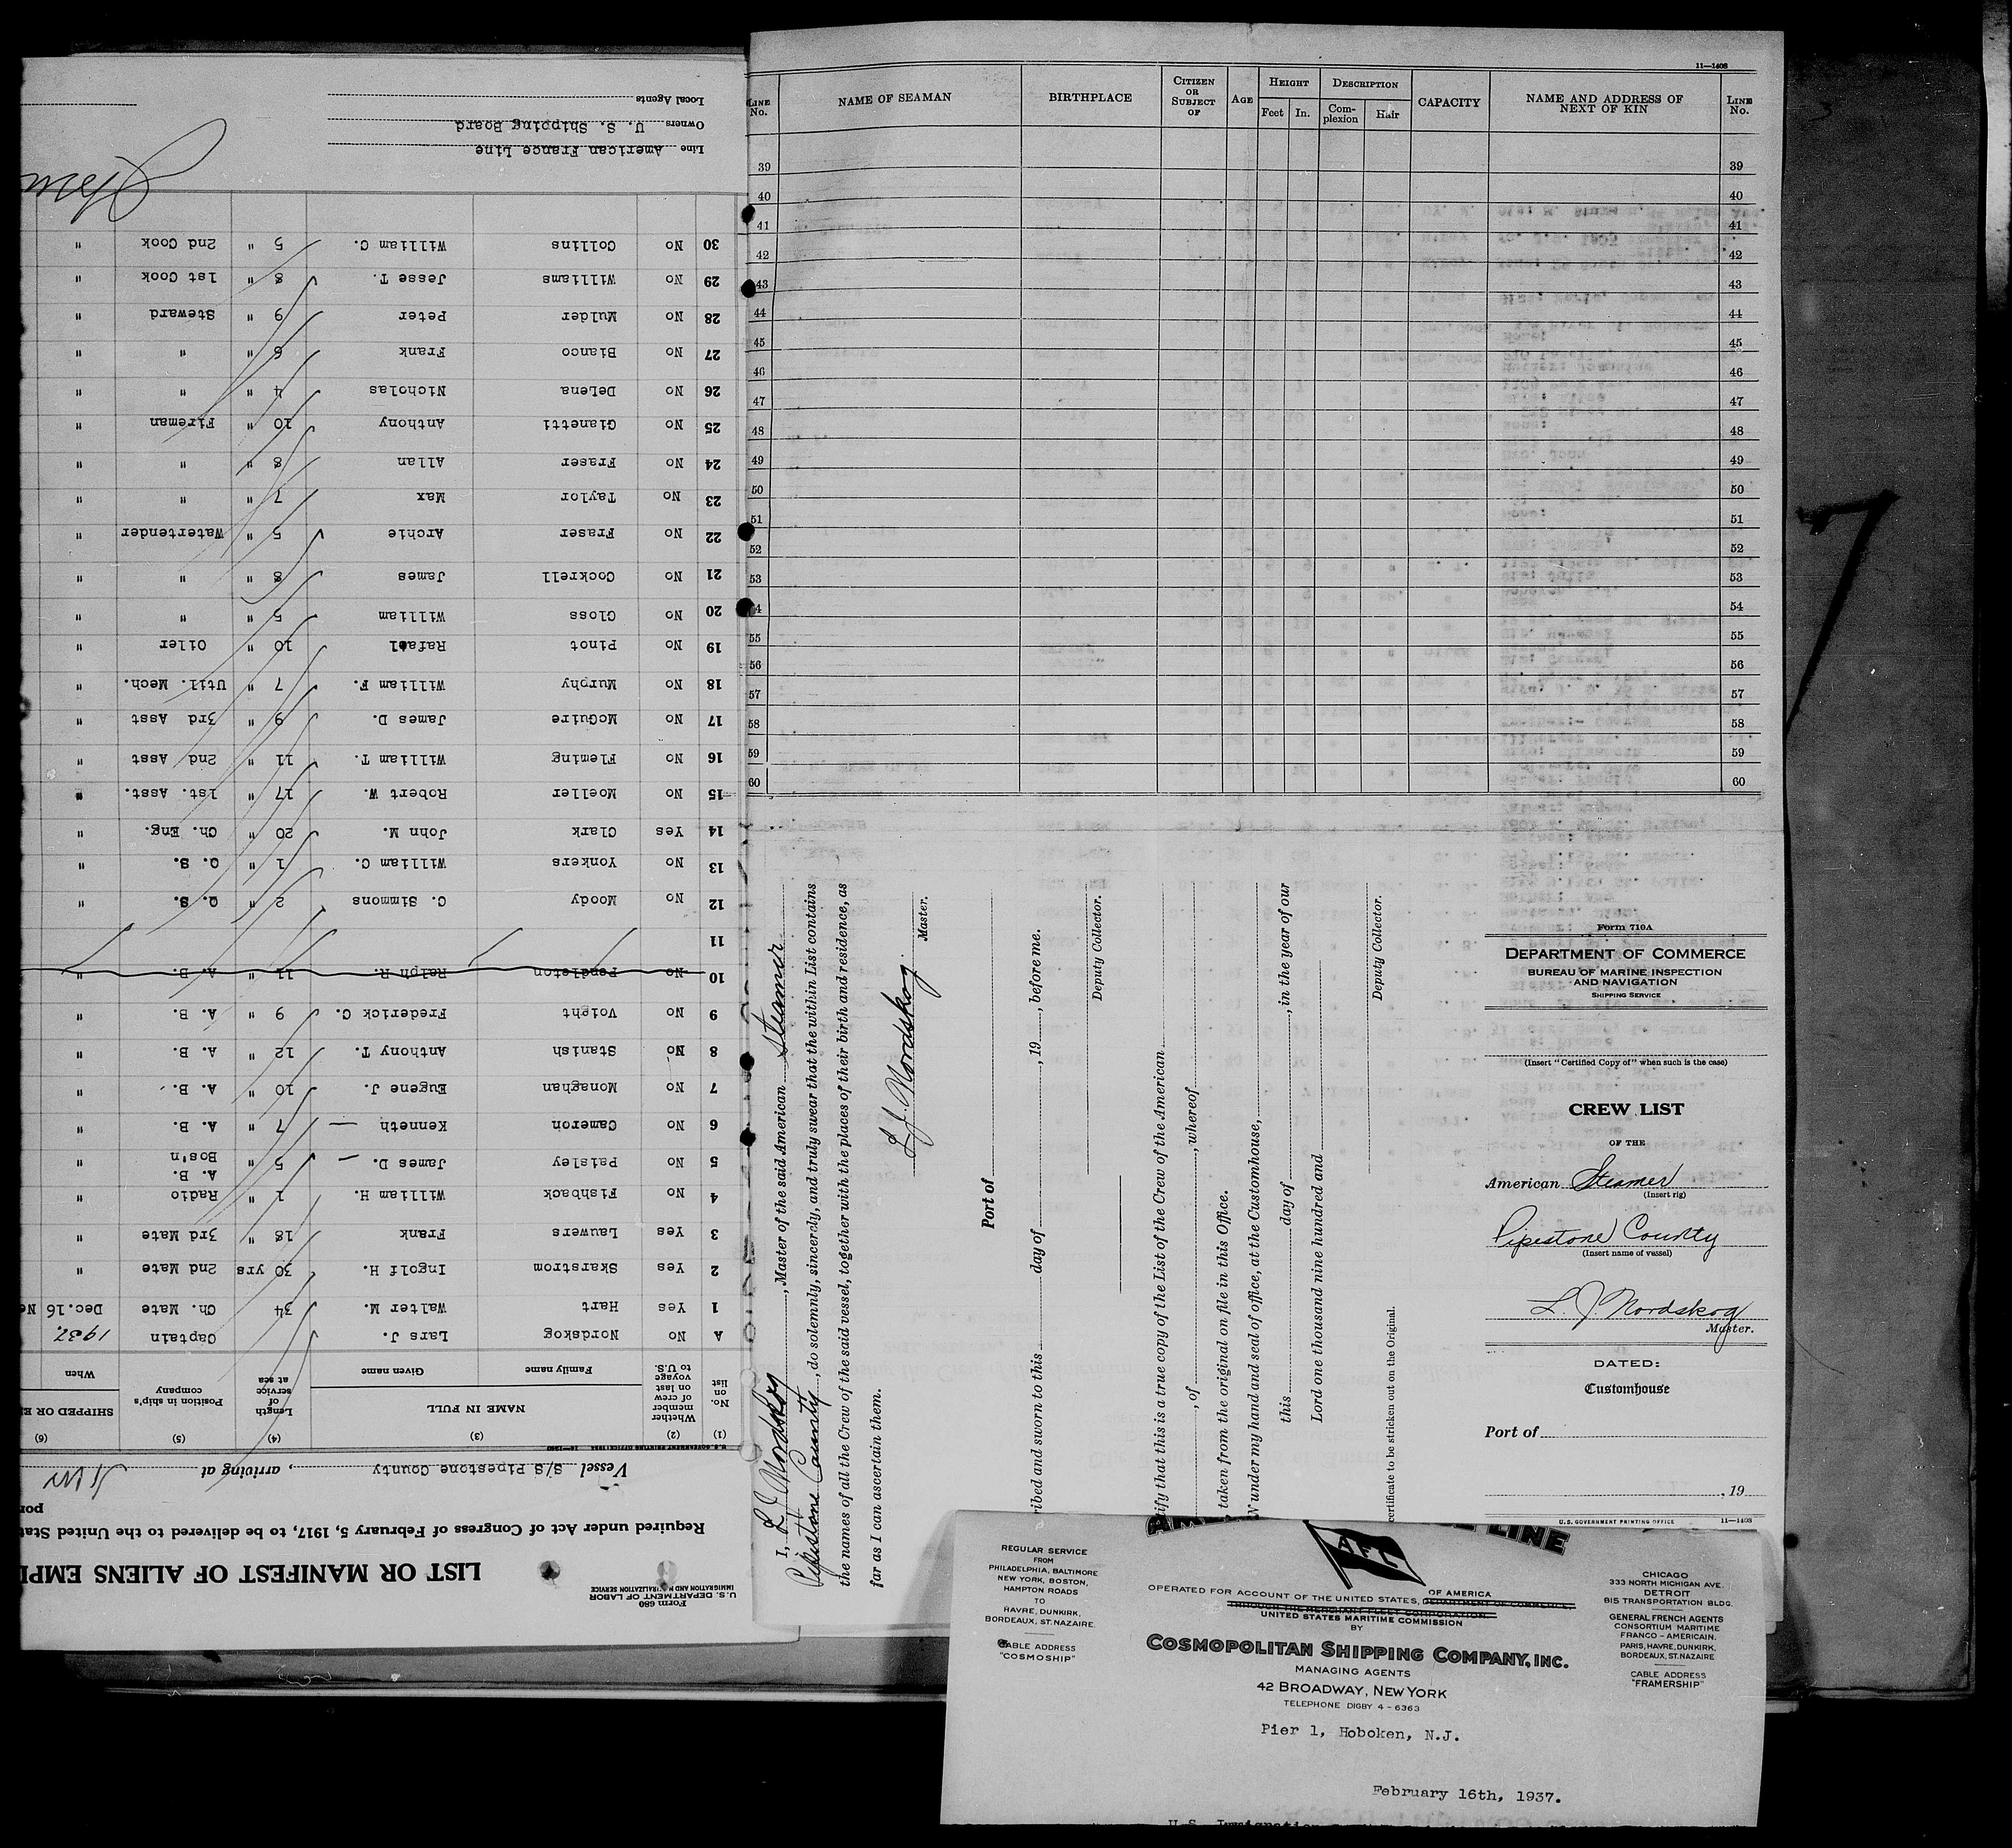 Form 680
U.S. DEPARTMENT OF LABOR
IMMIGRATION AND NATURALIZATION SERVICE
LIST OR MANIFEST OF ALIENS EMPL
Required under Act of Congress of February 5, 1917, to be delivered to the United Stat
Vessel S/S Pipestone County, arriving at
U.S. GOVERNMENT PRINTING OFFICE
(1) (2) (3) (4) (5) (6)
No. on list
Whether member of crew on last voyage to U.S.
NAME IN FULL
Family name Given name
Length of service at sea
Position in ship's company
SHIPPED OR E
When
A No Nordskog Lars J. Captain 1937.
1 Yes Hart Walter M. 34 Ch. Mate Dec.16 Ne
2 Yes Skarstrom Ingolf H. 30 yrs 2nd Mate "
3 Yes Lauwers Frank 18 " 3rd Mate "
4 No Fishback William H. 1 " Radio "
5 No Paisley James D. — 5 " A. B. Bos'n "
6 No Cameron Kenneth — 7 " A. B. "
7 No Monaghan Eugene J. 10 " A. B. "
8 No Stanish Anthony T. 12 " A. B. "
9 No Voight Frederick C. 9 " A. B. "
10 No Pendleton Ralph R. 11 " A. B. "
11
12 No Moody C. Simmons 2 " O. S. "
13 No Yonkers William C. 1 " O. S. "
14 Yes Clark John M. 20 " Ch. Eng. "
15 No Moeller Robert W. 17 " 1st. Asst. "
16 No Fleming William T. 11 " 2nd Asst "
17 No McGuire James D. 9 " 3rd Asst "
18 No Murphy William F. 7 " Util. Mech. "
19 No Pinot Rafael 10 " Oiler "
20 No Gloss William 5 " " "
21 No Cockrell James 8 " " "
22 No Fraser Archie 5 " Watertender "
23 No Taylor Max 7 " " "
24 No Fraser Allan 8 " " "
25 No Gianetti Anthony 10 " Fireman "
26 No DeLena Nicholas 4 " " "
27 No Bianco Frank 6 " " "
28 No Mulder Peter 9 " Steward "
29 No Williams Jesse T. 8 " 1st Cook "
30 No Collins William C. 5 " 2nd Cook "
Line American France Line
Owners U. S. Shipping Board
Local Agents
11—1408
LINE No. NAME OF SEAMAN BIRTHPLACE CITIZEN OR SUBJECT OF AGE HEIGHT Feet In. DESCRIPTION Complexion Hair CAPACITY NAME AND ADDRESS OF NEXT OF KIN LINE No.
39 39
40 40
41 41
42 42
43 43
44 44
45 45
46 46
47 47
48 48
49 49
50 50
51 51
52 52
53 53
54 54
55 55
56 56
57 57
58 58
59 59
60 60
I, L. J. Nordskog, Master of the said American Steamer
Pipestone County, do solemnly, sincerely, and truly swear that the within List contains
the names of all the Crew of the said vessel, together with the places of their birth and residence, as
far as I can ascertain them.
L. J. Nordskog
Master.
Port of
ribed and sworn to this day of , 19 , before me.
Deputy Collector.
tify that this is a true copy of the List of the Crew of the American
, of , whereof
taken from the original on file in this Office.
under my hand and seal of office, at the Customhouse,
this day of , in the year of our
Lord one thousand nine hundred and
Deputy Collector.
certificate to be stricken out on the Original.
Form 710A
DEPARTMENT OF COMMERCE
BUREAU OF MARINE INSPECTION
AND NAVIGATION
SHIPPING SERVICE
(Insert "Certified Copy of" when such is the case)
CREW LIST
OF THE
American Steamer
(Insert rig)
Pipestone County
(Insert name of vessel)
L. J. Nordskog
Master.
DATED:
Customhouse
Port of
, 19
U.S. GOVERNMENT PRINTING OFFICE 11—1408
LINE
AFL
REGULAR SERVICE
FROM
PHILADELPHIA, BALTIMORE
NEW YORK, BOSTON,
HAMPTON ROADS
TO
HAVRE, DUNKIRK,
BORDEAUX, ST. NAZAIRE.
CABLE ADDRESS
"COSMOSHIP"
OPERATED FOR ACCOUNT OF THE UNITED STATES, DEPARTMENT OF COMMERCE, OF AMERICA
THROUGH THE MERCHANT FLEET CORPORATION
UNITED STATES MARITIME COMMISSION
BY
COSMOPOLITAN SHIPPING COMPANY, INC.
MANAGING AGENTS
42 BROADWAY, NEW YORK
TELEPHONE DIGBY 4-6363
CHICAGO
333 NORTH MICHIGAN AVE.
DETROIT
815 TRANSPORTATION BLDG.
GENERAL FRENCH AGENTS
CONSORTIUM MARITIME
FRANCO-AMERICAIN.
PARIS, HAVRE, DUNKIRK,
BORDEAUX, ST. NAZAIRE
CABLE ADDRESS
"FRAMERSHIP"
Pier 1, Hoboken, N.J.
February 16th, 1937.
7